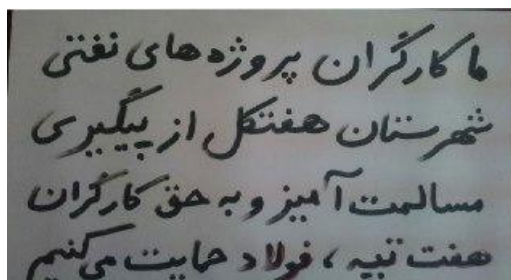 ما کارگران پروژه های نفتی
شهرستان هفتکل از پیگیری
مسالمت آمیز و به حق کارگران
هفت تپه ، فولاد حمایت می کنیم